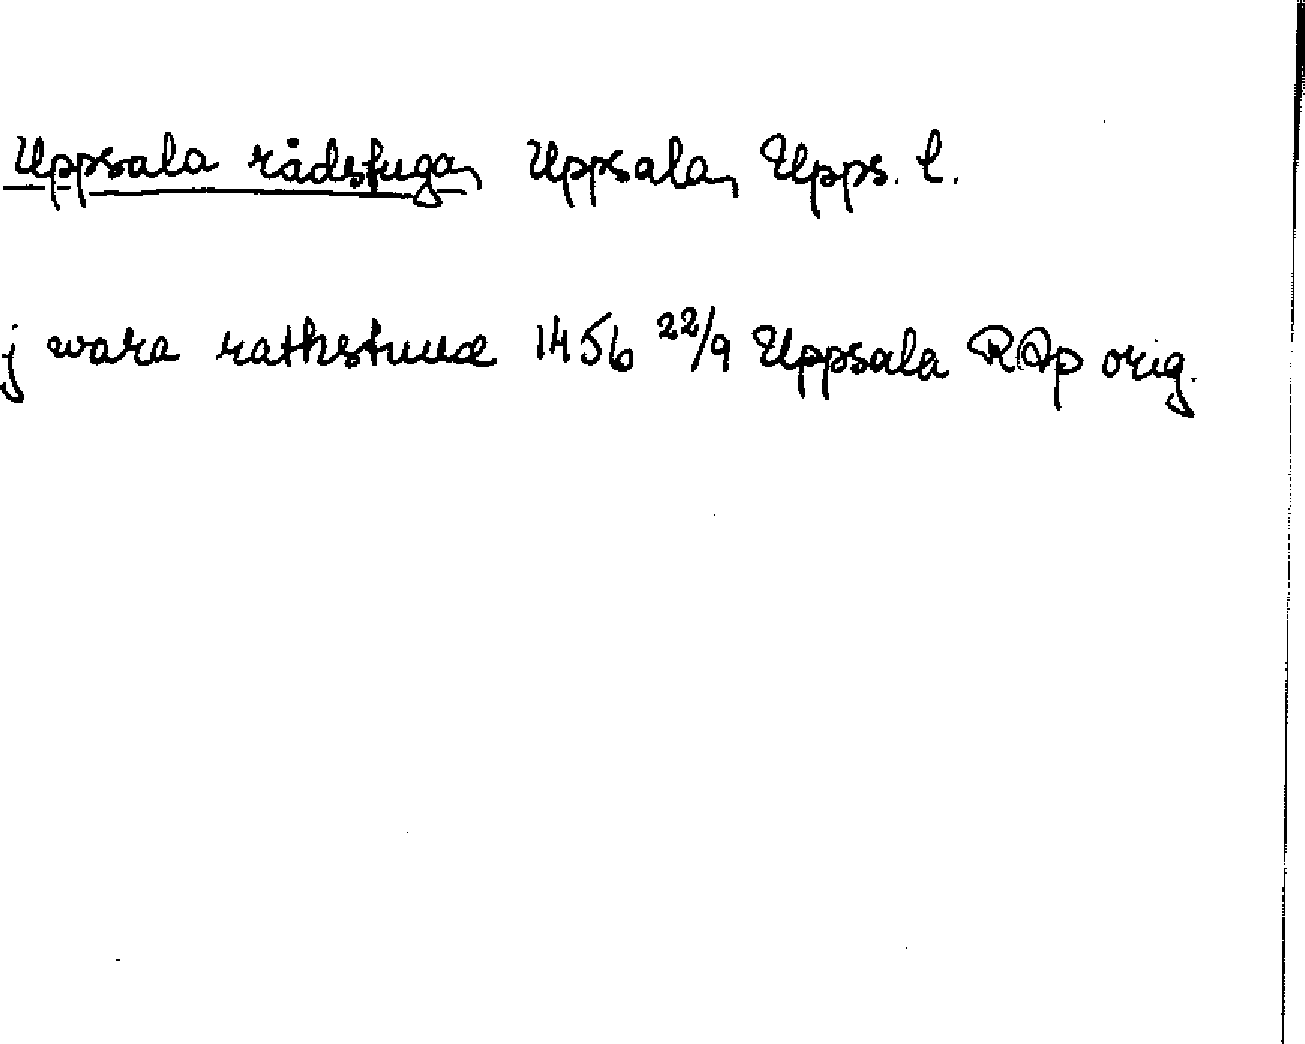 Uppsala rådstuga, Uppsala, Upps. l.
j wara rathstuwæ 1456 22/9 Uppsala RAp orig.